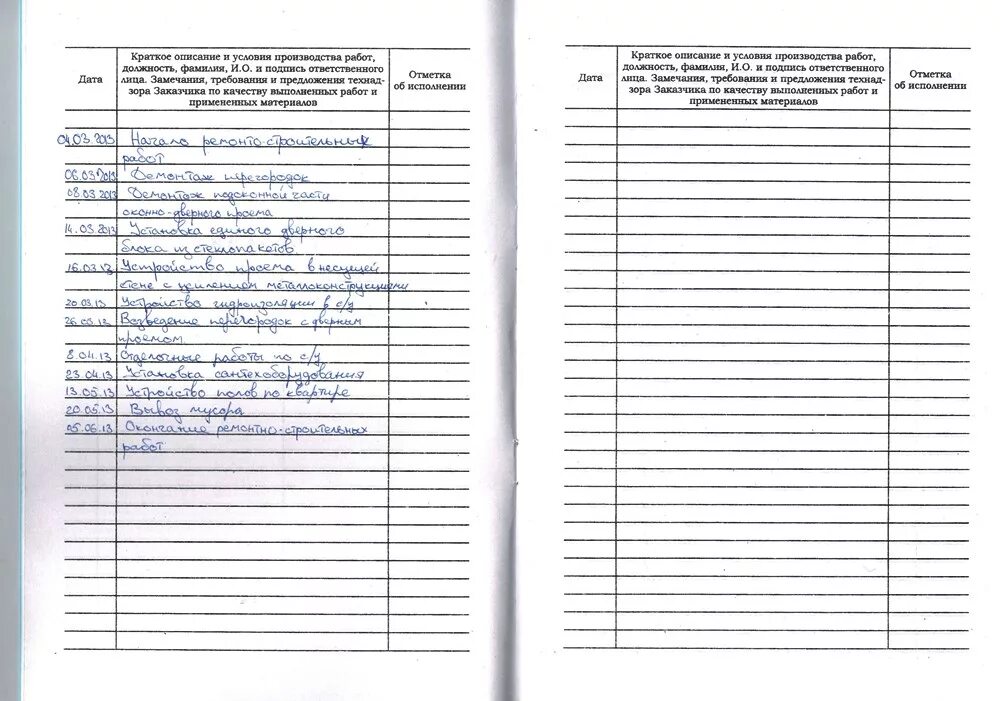 Дата
Краткое описание и условия производства работ,
должность, фамилия, И.О. и подпись ответственного
лица. Замечания, требования и предложения технад-
зора Заказчика по качеству выполненных работ и
примененных материалов
Отметка
об исполнении
04.03.2013 Начало ремонто-строительных
работ
06.03.2013 Демонтаж перегородок
08.03.2013 Демонтаж подоконной части
оконно-дверного проема
14.03.2013 Установка единого дверного
блока из стеклопакетов
16.03.13 Устройство проема в несущей
стене с усилением металлоконструкциями
20.03.13 Устройство гидроизоляции в с/у
Возведение перегородок с дверным
проемом
8.04.13 Отделочные работы по с/у
23.04.13 Установка сантехоборудования
13.05.13 Устройство полов по квартире
20.05.13 Вывоз мусора
05.06.13 Окончание ремонтно-строительных
работ
Дата
Краткое описание и условия производства работ,
должность, фамилия, И.О. и подпись ответственного
лица. Замечания, требования и предложения технад-
зора Заказчика по качеству выполненных работ и
примененных материалов
Отметка
об исполнении